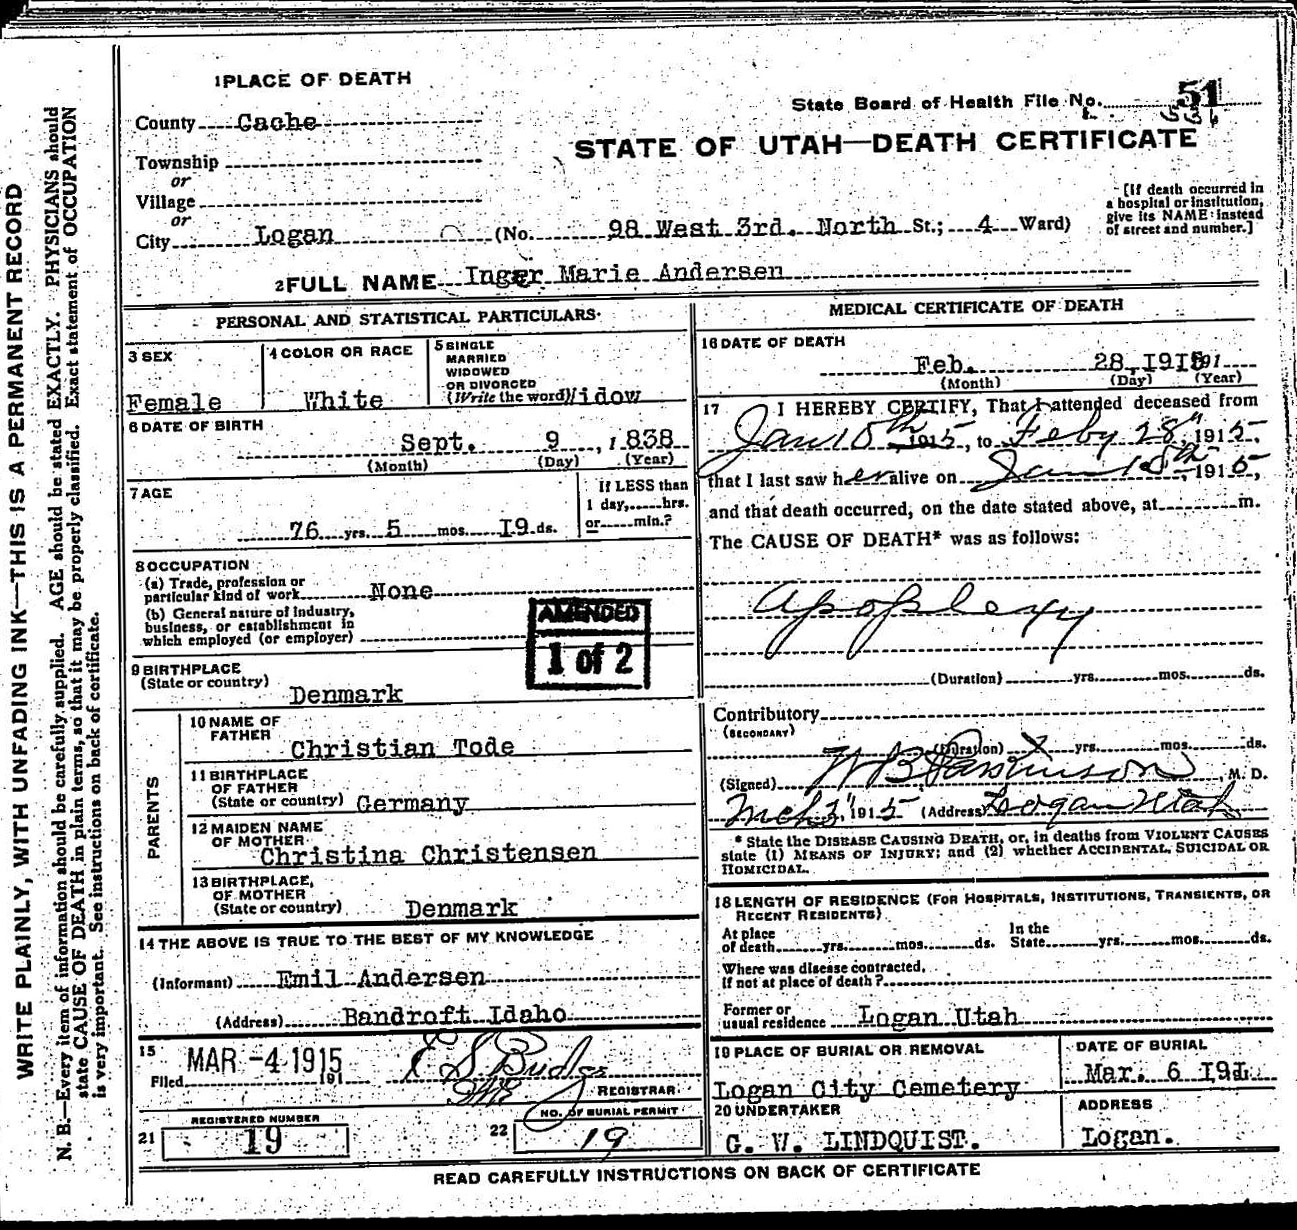 1 PLACE OF DEATH
State Board of Health File No. 51
County Cache
STATE OF UTAH—DEATH CERTIFICATE
Township
or
Village
or
City Logan (No. 98 West 3rd. North St.; 4 Ward)
[If death occurred in a hospital or institution, give its NAME instead of street and number.]
2 FULL NAME Inger Marie Andersen
PERSONAL AND STATISTICAL PARTICULARS
3 SEX
Female
4 COLOR OR RACE
White
5 SINGLE
MARRIED
WIDOWED
OR DIVORCED
(Write the word) Widow
6 DATE OF BIRTH
Sept. 9, 1838
(Month) (Day) (Year)
7 AGE
76 yrs. 5 mos. 19 ds.
If LESS than
1 day,......hrs.
or......min.?
8 OCCUPATION
(a) Trade, profession or
particular kind of work None
(b) General nature of industry,
business, or establishment in
which employed (or employer)
AMENDED
1 of 2
9 BIRTHPLACE
(State or country)
Denmark
PARENTS
10 NAME OF
FATHER
Christian Tode
11 BIRTHPLACE
OF FATHER
(State or country) Germany
12 MAIDEN NAME
OF MOTHER
Christina Christensen
13 BIRTHPLACE,
OF MOTHER
(State or country) Denmark
14 THE ABOVE IS TRUE TO THE BEST OF MY KNOWLEDGE
(Informant) Emil Andersen
(Address) Bandroft Idaho
15
MAR -4 1915
Filed 191
REGISTRAR
REGISTERED NUMBER
21 19
NO. OF BURIAL PERMIT
22 19
MEDICAL CERTIFICATE OF DEATH
16 DATE OF DEATH
Feb. 28, 1915 191
(Month) (Day) (Year)
17 I HEREBY CERTIFY, That I attended deceased from
Jan 18th, 1915, to Feby 28th, 1915,
that I last saw her alive on Jan 18th, 1915,
and that death occurred, on the date stated above, at m.
The CAUSE OF DEATH* was as follows:
Apoplexy
(Duration) yrs. mos. ds.
Contributory
(SECONDARY)
(Duration) yrs. mos. ds.
(Signed) W B Parkinson, M. D.
Mch 3, 1915 (Address) Logan Utah
* State the DISEASE CAUSING DEATH, or, in deaths from VIOLENT CAUSES
state (1) MEANS OF INJURY; and (2) whether ACCIDENTAL, SUICIDAL OR
HOMICIDAL.
18 LENGTH OF RESIDENCE (FOR HOSPITALS, INSTITUTIONS, TRANSIENTS, OR
RECENT RESIDENTS)
At place
of death yrs. mos. ds.
In the
State yrs. mos. ds.
Where was disease contracted,
if not at place of death?
Former or
usual residence Logan Utah
19 PLACE OF BURIAL OR REMOVAL
Logan City Cemetery
DATE OF BURIAL
Mar. 6 191
20 UNDERTAKER
G. W. LINDQUIST.
ADDRESS
Logan.
READ CAREFULLY INSTRUCTIONS ON BACK OF CERTIFICATE
WRITE PLAINLY, WITH UNFADING INK—THIS IS A PERMANENT RECORD
N. B.—Every item of information should be carefully supplied. AGE should be stated EXACTLY. PHYSICIANS should
state CAUSE OF DEATH in plain terms, so that it may be properly classified. Exact statement of OCCUPATION
is very important. See instructions on back of certificate.